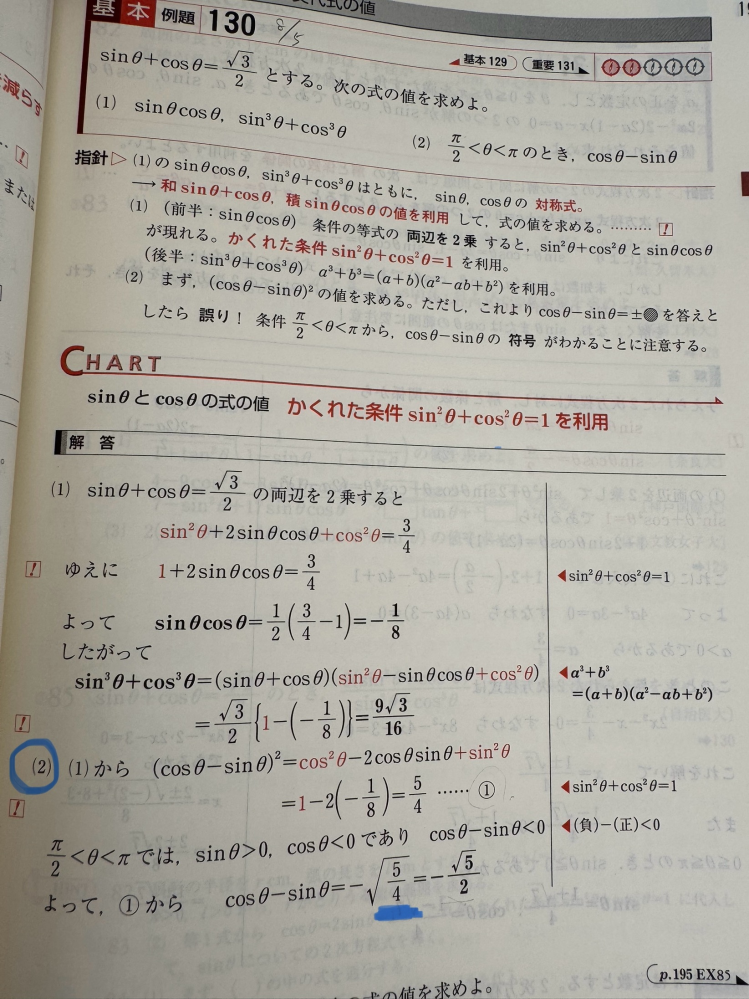 式の値
基本 例題 130 8/5
sinθ+cosθ=√3/2 とする。次の式の値を求めよ。
基本 129 重要 131
(1) sinθcosθ, sin³θ+cos³θ
(2) π/2<θ<πのとき, cosθ−sinθ
指針 ▷ (1) の sinθcosθ, sin³θ+cos³θ はともに, sinθ, cosθ の 対称式。
→ 和 sinθ+cosθ, 積 sinθcosθ の値を利用 して, 式の値を求める。………!
(1) (前半:sinθcosθ) 条件の等式の 両辺を2乗 すると, sin²θ+cos²θ と sinθcosθ
が現れる。かくれた条件 sin²θ+cos²θ=1 を利用。
(後半:sin³θ+cos³θ) a³+b³=(a+b)(a²−ab+b²) を利用。
(2) まず, (cosθ−sinθ)² の値を求める。ただし, これより cosθ−sinθ=±● を答えと
したら 誤り! 条件 π/2<θ<π から, cosθ−sinθ の 符号 がわかることに注意する。
CHART
sinθ と cosθ の式の値 かくれた条件 sin²θ+cos²θ=1 を利用
解答
(1) sinθ+cosθ=√3/2 の両辺を2乗すると
sin²θ+2sinθcosθ+cos²θ=3/4
! ゆえに 1+2sinθcosθ=3/4
◀sin²θ+cos²θ=1
よって sinθcosθ=1/2(3/4−1)=−1/8
したがって
sin³θ+cos³θ=(sinθ+cosθ)(sin²θ−sinθcosθ+cos²θ)
◀a³+b³
=(a+b)(a²−ab+b²)
! =√3/2{1−(−1/8)}=9√3/16
(2) (1)から (cosθ−sinθ)²=cos²θ−2cosθsinθ+sin²θ
! =1−2(−1/8)=5/4 …… ①
◀sin²θ+cos²θ=1
π/2<θ<π では, sinθ>0, cosθ<0 であり cosθ−sinθ<0
◀(負)−(正)<0
よって, ① から cosθ−sinθ=−√(5/4)=−√5/2
p.195 EX85
の式の値を求めよ。
減らす
または